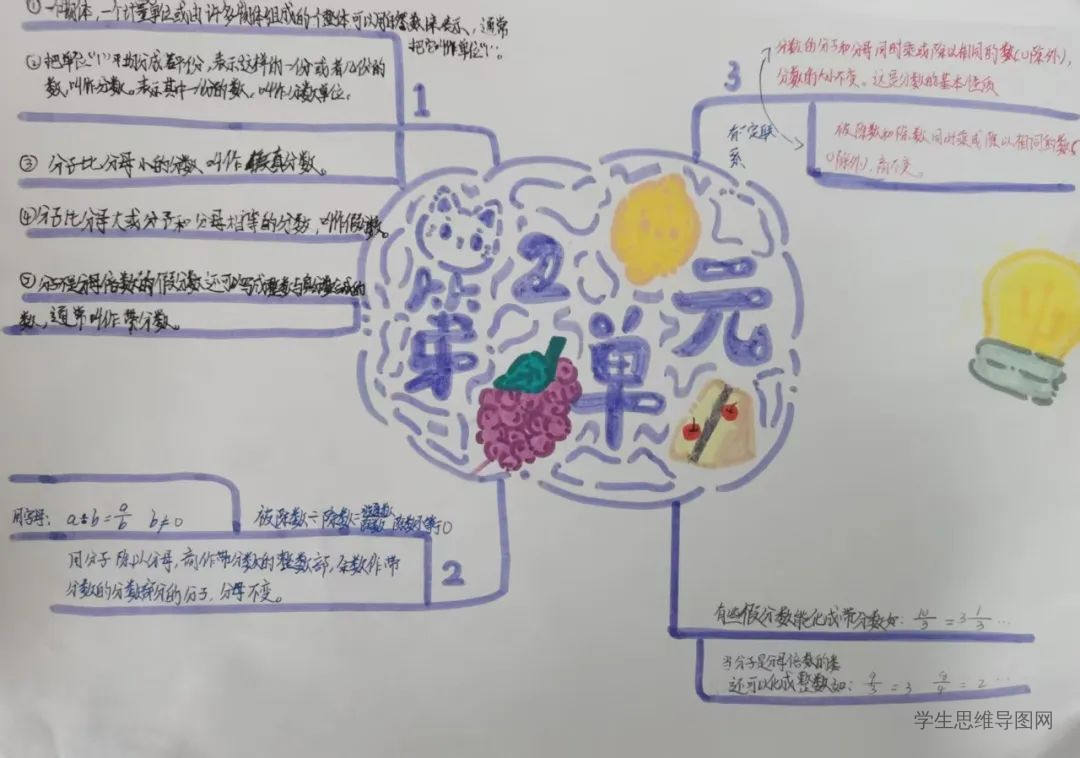 ①一个物体，一个计量单位或由许多物体组成的一个整体可以用自然数1来表示，通常
把它叫作单位"1"。
②把单位"1"平均分成若干份，表示这样的一份或者几份的
数，叫作分数。表示其中一份的数，叫作分数单位。
1
③ 分子比分母小的分数 叫作 真分数。
④分子比分母大或分子和分母相等的分数，叫作假分数。
⑤分子不是分母倍数的假分数还可以写成整数与真分数合成的
数，通常叫作带分数。
3
分数的分子和分母同时乘或除以相同的数(0除外)，
分数的大小不变。这是分数的基本性质
有一定联
系
被除数和除数同时乘或除以相同的数(
0除外)，商不变。
第2单元
用字母： a÷b=a/b b≠0
被除数÷除数= 除数不等于0
用分子除以分母，商作带分数的整数部，余数作带
分数的分数部分的分子，分母不变。
2
有些假分数能化成带分数如：10/3 = 3 1/3 …
当分子是分母倍数的
还可以化成整数如：9/3 = 3 8/4 = 2 …
学生思维导图网